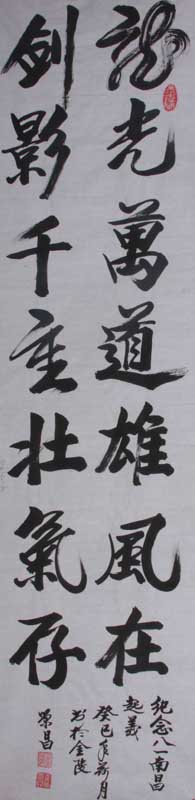 龍光萬道雄風在
劍影千重壯氣存
紀念八一南昌
起義
癸巳年荷月
书於金陵
荣昌